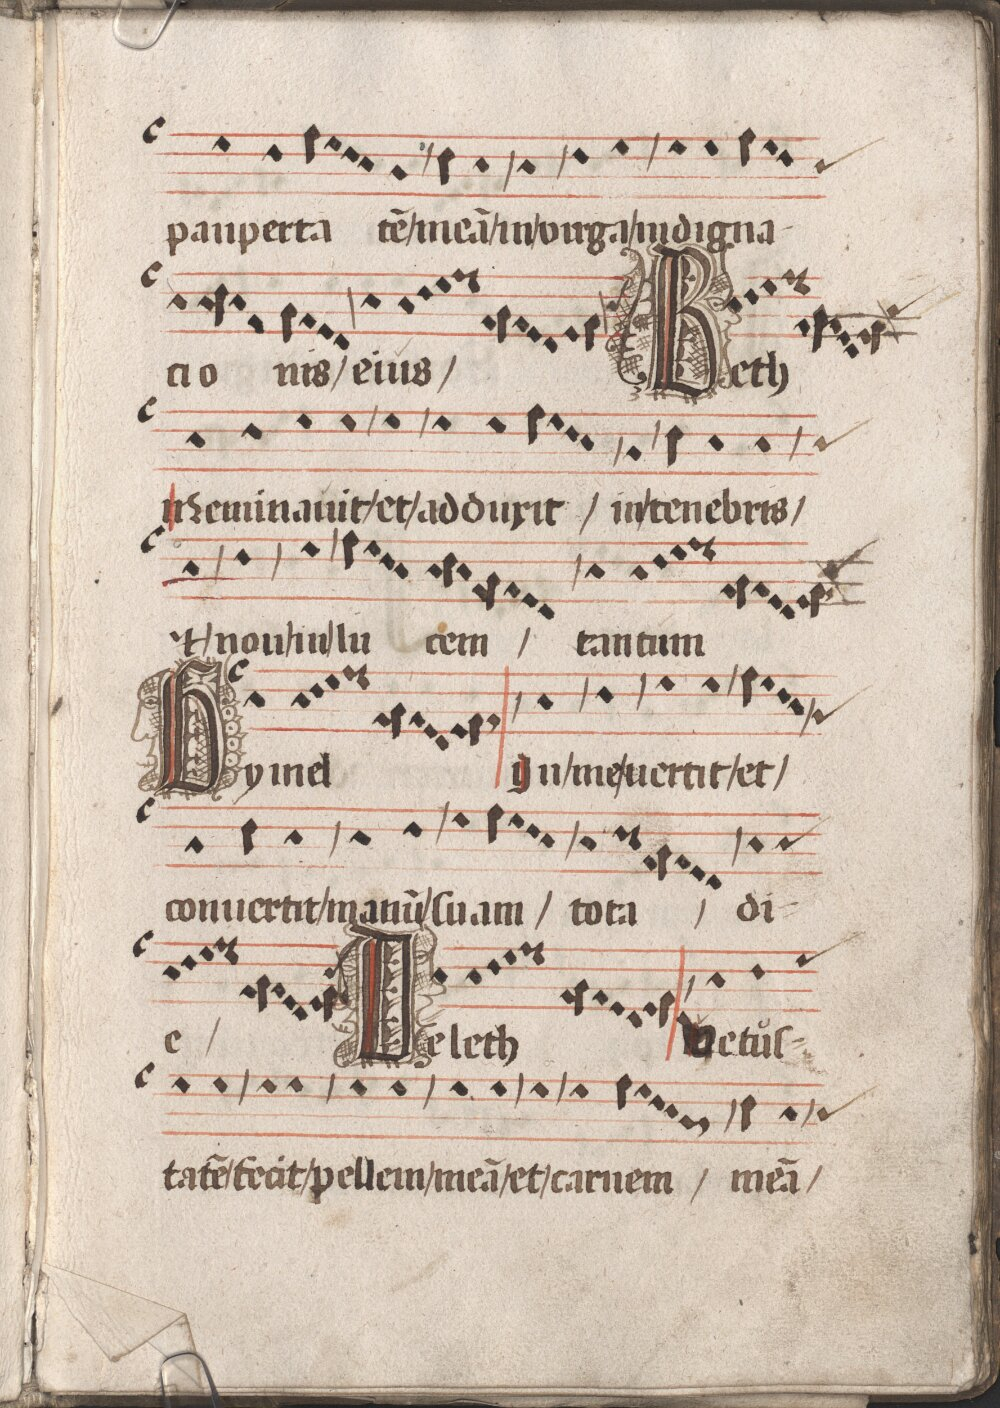 pauperta tē/meā/in/virga/indigna-
cio nis/eius/ Beth
me minauit/et/adduxit / in/tenebris/
et/non/in/lu cem / tantum
Gymel In/me/uertit/et/
conuertit/manū/suam / tota / di-
e / Deleth Vetus-
tatē/fecit/pellem/meā/et/carnem / meā/